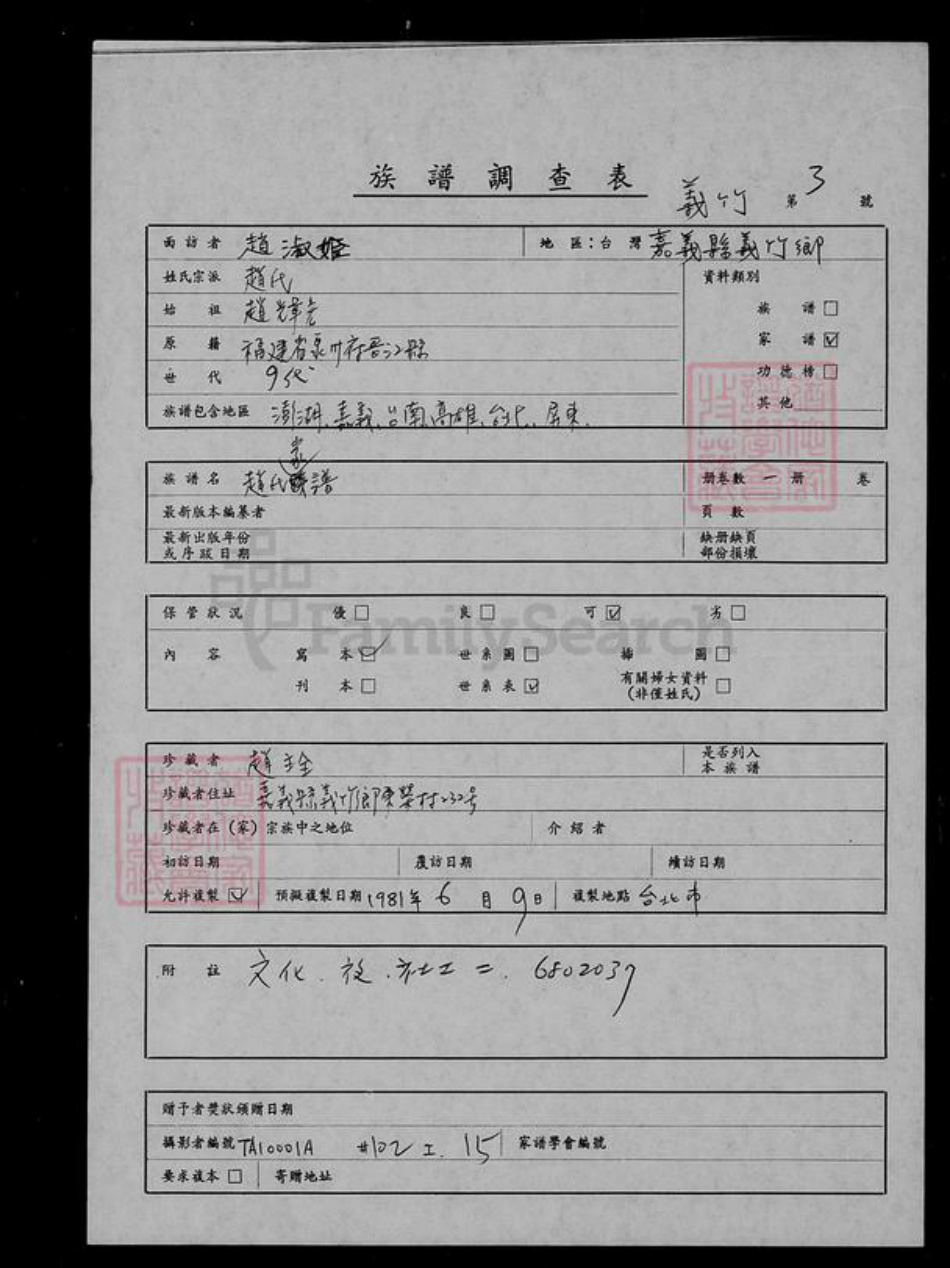 族譜調查表
義竹 第 3 號
面訪者 趙淑姬 地區：台灣 嘉義縣義竹鄉
姓氏宗派 趙氏 資料類別
始祖 趙 族譜☐
原籍 福建省泉州府晋江縣 家譜☑
世代 9代 功德榜☐
族譜包含地區 澎湖、嘉義、台南、高雄、台北、屏東. 其他
族譜名 趙氏家譜 册卷數 一 册 卷
最新版本編纂者 頁數
最新出版年份 缺册缺頁
或序跋日期 部份損壞
保管狀況 優☐ 良☐ 可☑ 劣☐
內容 寫本☑ 世系圖☐ 插圖☐
刊本☐ 世系表☑ 有關婦女資料(非僅姓氏)☐
FamilySearch
珍藏者 趙 是否列入本族譜
珍藏者住址 嘉義縣義竹鄉東榮村232号
珍藏者在（家）宗族中之地位 介紹者
初訪日期 覆訪日期 續訪日期
允許複製☑ 預擬複製日期 1981年 6 月 9 日 複製地點 台北市
附註 文化. .社工二. 6802037
贈予者獎狀頒贈日期
攝影者編號 TA10001A #102 I. 15 家譜學會編號
要求複本☐ 寄贈地址